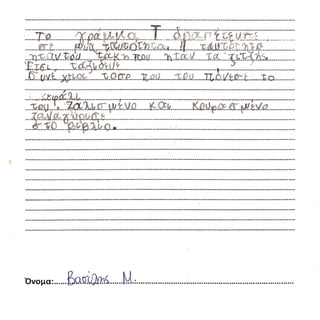 Το γράμμα Τ δραπέτευσε
σε μια ταυτότητα. Η ταυτότητα
ήταν του τάκη που ήταν τα
Έτσι, ταξίδευε
συνέχεια τόσο που του πόνεσε το
κεφάλι
του. Ζαλισμένο και κουρασμένο
ξαναγύρισε
στο βιβλίο.
Όνομα: Βασίλης Μ.